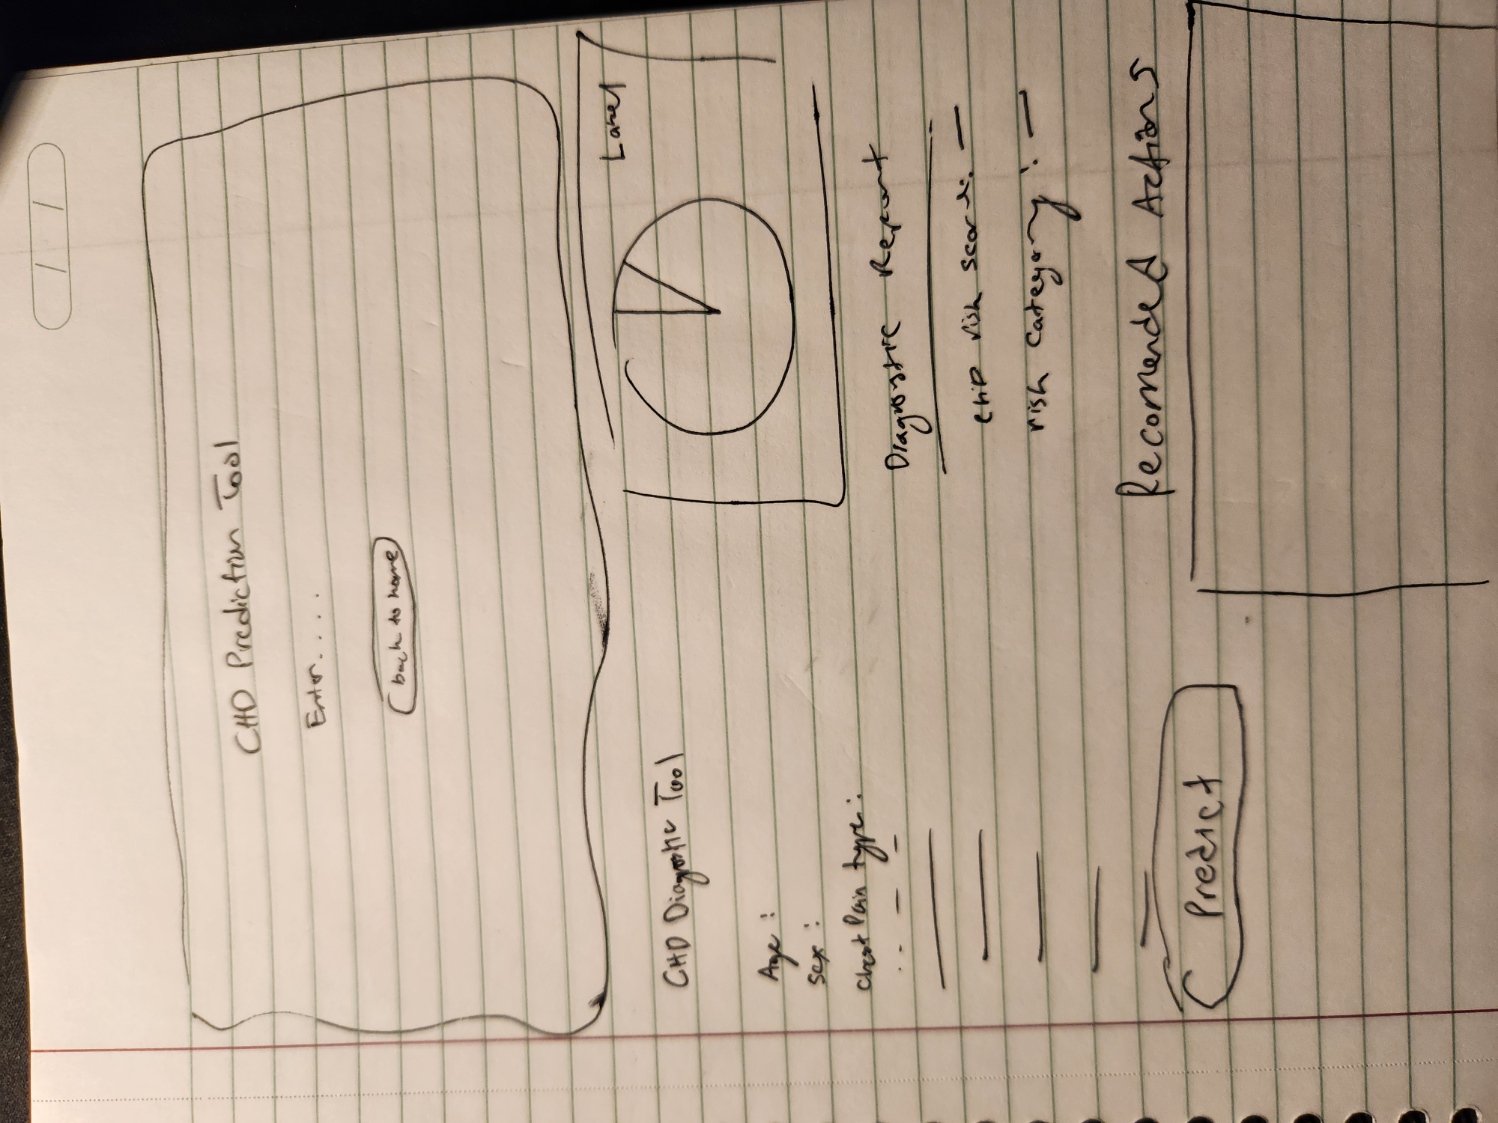 CHD Prediction Tool
Enter....
back to home
Label
CHD Diagnostic Tool
Age :
sex :
chest Pain type :
Predict
Diagnostic Report
CHD risk score:
risk category :
Recomended Actions